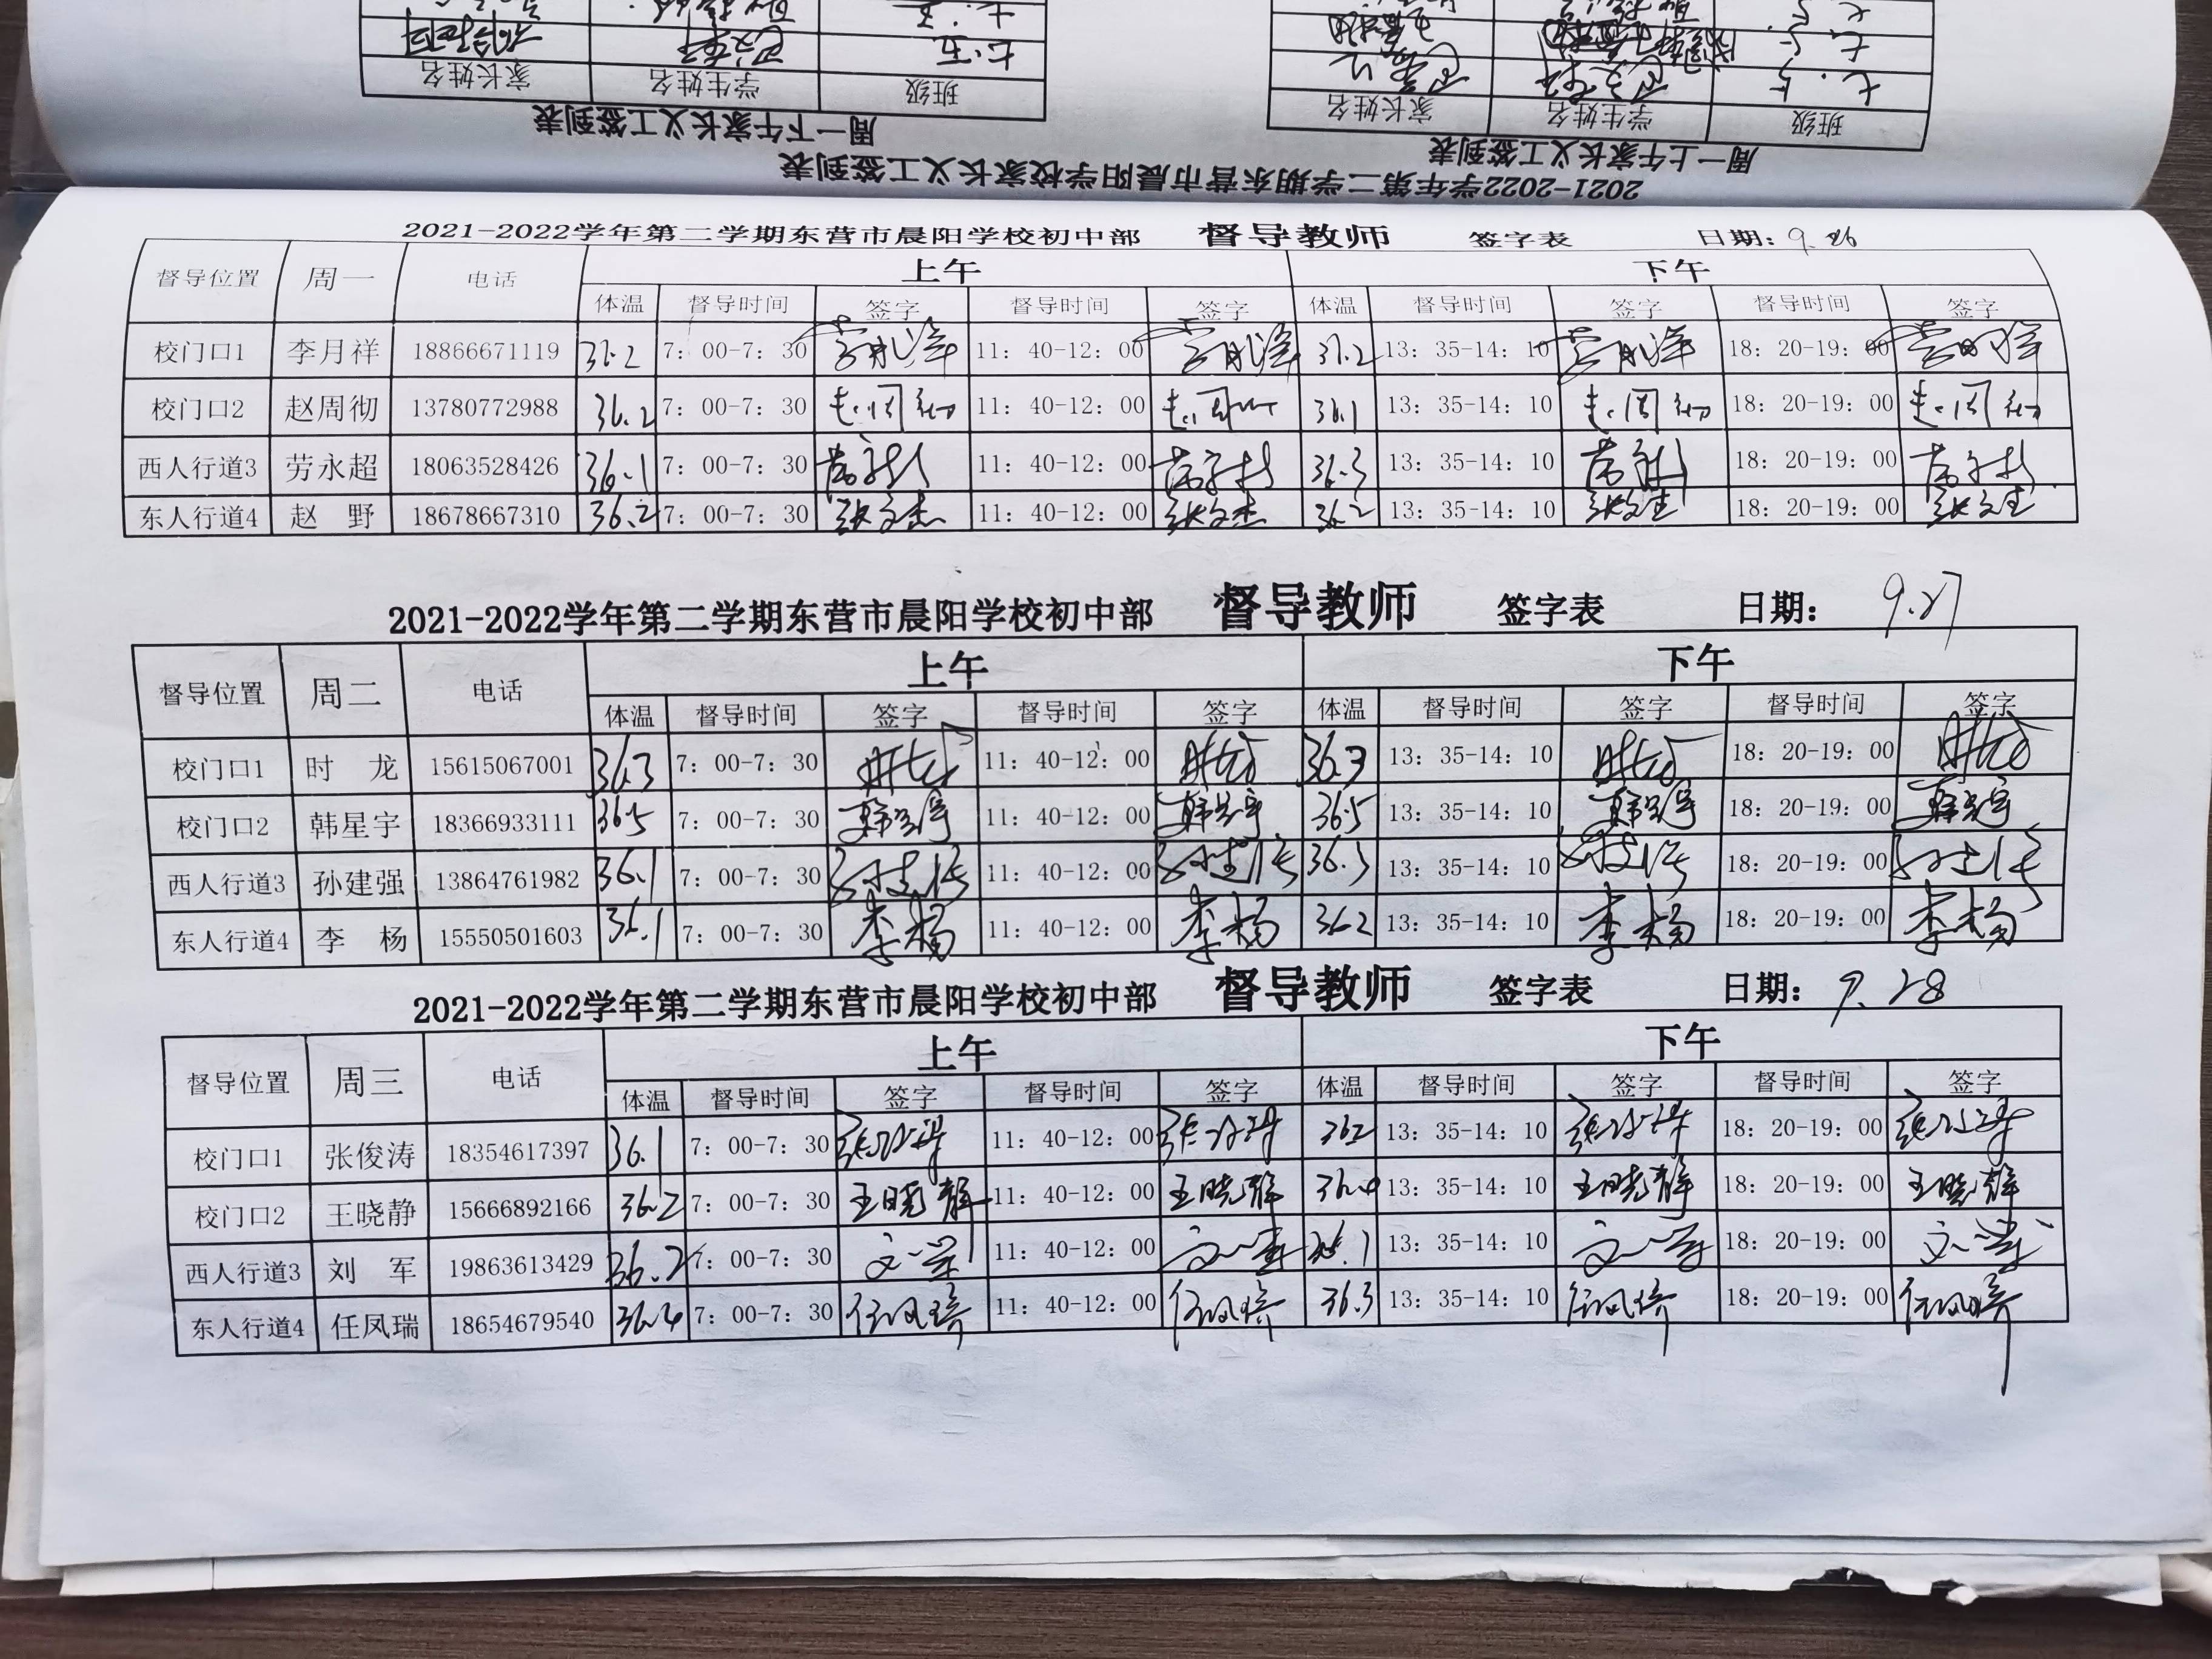 家长姓名 学生姓名 班级
周一下午家长义工签到表
家长姓名 学生姓名 班级
周一上午家长义工签到表
2021-2022学年第二学期东营市晨阳学校家长义工签到表
2021-2022学年第二学期东营市晨阳学校初中部 督导教师 签字表 日期: 9.26
督导位置 周一 电话 上午 下午
体温 督导时间 签字 督导时间 签字 体温 督导时间 签字 督导时间 签字
校门口1 李月祥 18866671119 7: 00-7: 30 11: 40-12: 00 13: 35-14: 10 18: 20-19: 00
校门口2 赵周彻 13780772988 36.2 7: 00-7: 30 11: 40-12: 00 36.1 13: 35-14: 10 18: 20-19: 00
西人行道3 劳永超 18063528426 36.1 7: 00-7: 30 11: 40-12: 00 36.3 13: 35-14: 10 18: 20-19: 00
东人行道4 赵 野 18678667310 36.2 7: 00-7: 30 张文杰 11: 40-12: 00 张文杰 36.2 13: 35-14: 10 18: 20-19: 00
2021-2022学年第二学期东营市晨阳学校初中部 督导教师 签字表 日期: 9.27
督导位置 周二 电话 上午 下午
体温 督导时间 签字 督导时间 签字 体温 督导时间 签字 督导时间 签字
校门口1 时 龙 15615067001 36.3 7: 00-7: 30 11: 40-12: 00 36.3 13: 35-14: 10 18: 20-19: 00
校门口2 韩星宇 18366933111 36.5 7: 00-7: 30 韩星宇 11: 40-12: 00 韩星宇 36.5 13: 35-14: 10 韩星宇 18: 20-19: 00 韩星宇
西人行道3 孙建强 13864761982 36.1 7: 00-7: 30 孙建强 11: 40-12: 00 孙建强 36.3 13: 35-14: 10 孙建强 18: 20-19: 00 孙建强
东人行道4 李 杨 15550501603 36.1 7: 00-7: 30 李杨 11: 40-12: 00 李杨 36.2 13: 35-14: 10 李杨 18: 20-19: 00 李杨
2021-2022学年第二学期东营市晨阳学校初中部 督导教师 签字表 日期: 9.28
督导位置 周三 电话 上午 下午
体温 督导时间 签字 督导时间 签字 体温 督导时间 签字 督导时间 签字
校门口1 张俊涛 18354617397 36.1 7: 00-7: 30 11: 40-12: 00 36.2 13: 35-14: 10 18: 20-19: 00
校门口2 王晓静 15666892166 36.2 7: 00-7: 30 王晓静 11: 40-12: 00 王晓静 13: 35-14: 10 王晓静 18: 20-19: 00 王晓静
西人行道3 刘 军 19863613429 36.2 7: 00-7: 30 11: 40-12: 00 36.1 13: 35-14: 10 18: 20-19: 00
东人行道4 任凤瑞 18654679540 36.4 7: 00-7: 30 任凤瑞 11: 40-12: 00 任凤瑞 36.3 13: 35-14: 10 任凤瑞 18: 20-19: 00 任凤瑞